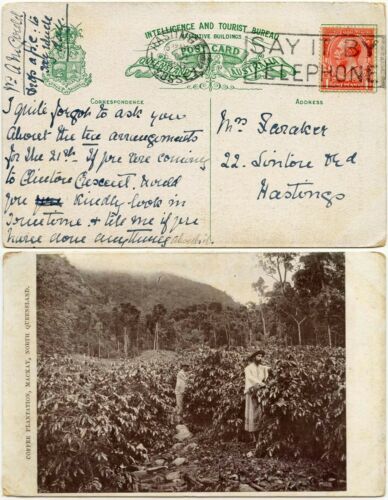 INTELLIGENCE AND TOURIST BUREAU
EXECUTIVE BUILDINGS
POST CARD
QUEENSLAND AUSTRALIA
HASTINGS
SUSSEX
SAY IT BY
TELEPHONE
CORRESPONDENCE
I quite forgot to ask you
About the tea arrangements
for the 21st. If you were coming
to Clinton Crescent. Would
you kindly look in
sometime & tell me if you
have done anything about it.
ADDRESS
Mrs
22. Linton Rd
Hastings
COFFEE PLANTATION, MACKAY, NORTH QUEENSLAND.